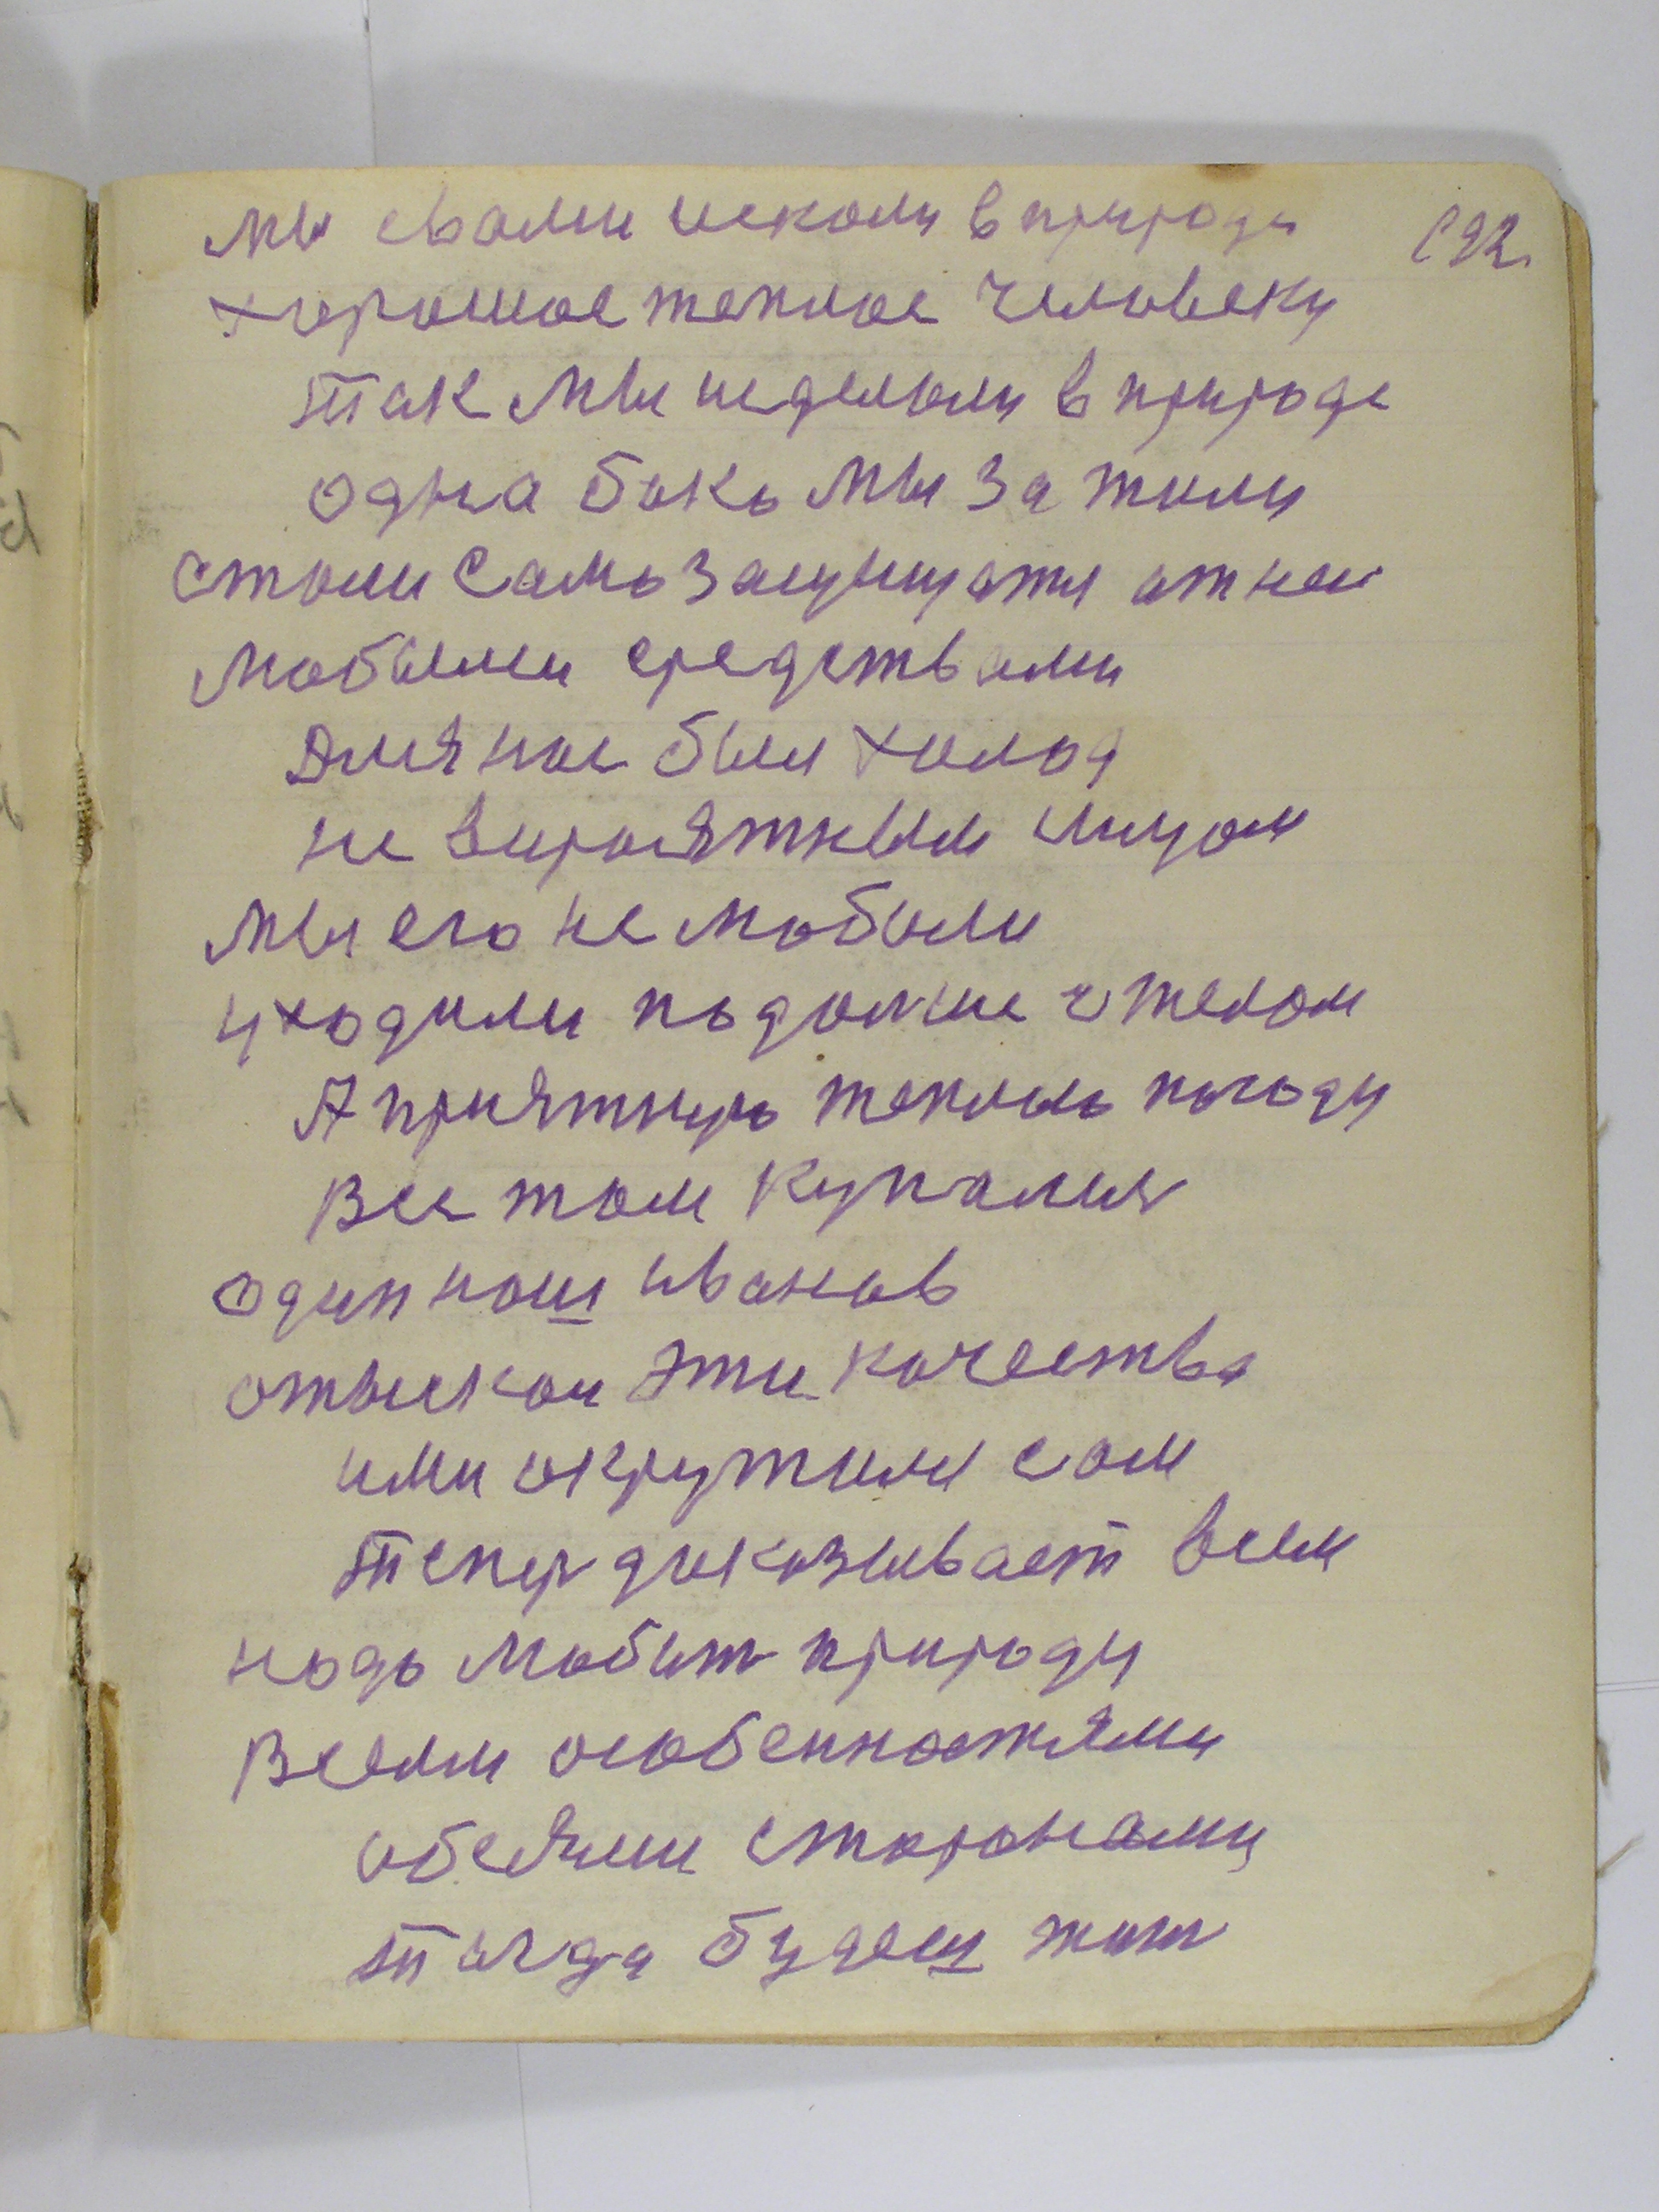 мы свами искали в природи
с 92.
хорошое теплое человеку
так мы неделали в природе
одна бако мы за жили
стали само защищатя от неи
любыми средствами
Для нас был холод
не вироятным лицом
мы его не любили
уходили подальше отжелом
А приятную теплою погоду
Все там купалис
один наш иванов
отыскал эти качества
ими окружил сам
тепер доказывает всем
надо любит природу
Всеми особенностями
обеями сторонами
тагда будеш жит